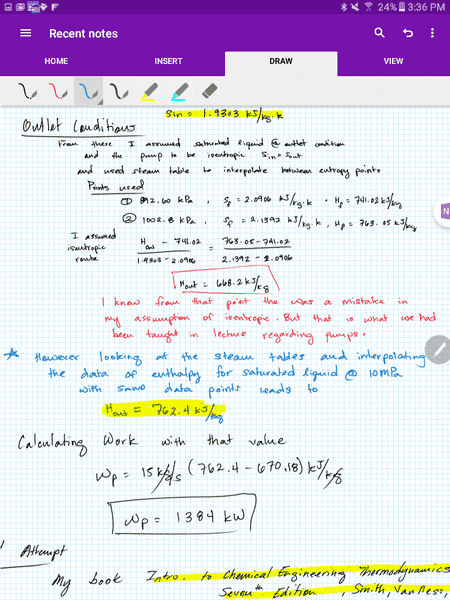 24% 3:36 PM
Recent notes
HOME INSERT DRAW VIEW
Sin = 1.9303 kJ/kg.k
Outlet Conditions
From there I assumed saturated liquid @ outlet condition
and the pump to be isentropic Sin = Sout
and used steam table to interpolate between entropy points
Points used
① 892.60 kPa , Sf = 2.0906 kJ/kg.k . Hf = 741.02 kJ/kg
② 1002.8 kPa , Sf = 2.1392 kJ/kg.k , Hf = 763.05 kJ/kg
I assumed
isentropic
route
Hout - 741.02 = 763.05 - 741.02
1.9303 - 2.0906 2.1392 - 2.0906
Hout = 668.2 kJ/kg
I know from that point the was a mistake in
my assumption of isentropic. But that is what we had
been taught in lecture regarding pumps.
However looking at the steam tables and interpolating
the data of enthalpy for saturated liquid @ 10MPa
with same data points leads to
Hout = 762.4 kJ/kg
Calculating Work with that value
Wp = 15 kg/s (762.4 - 670.18) kJ/kg
Wp = 1384 kW
Attempt
My book Intro. to Chemical Engineering Thermodynamics
Seventh Edition , Smith, Van Ness,